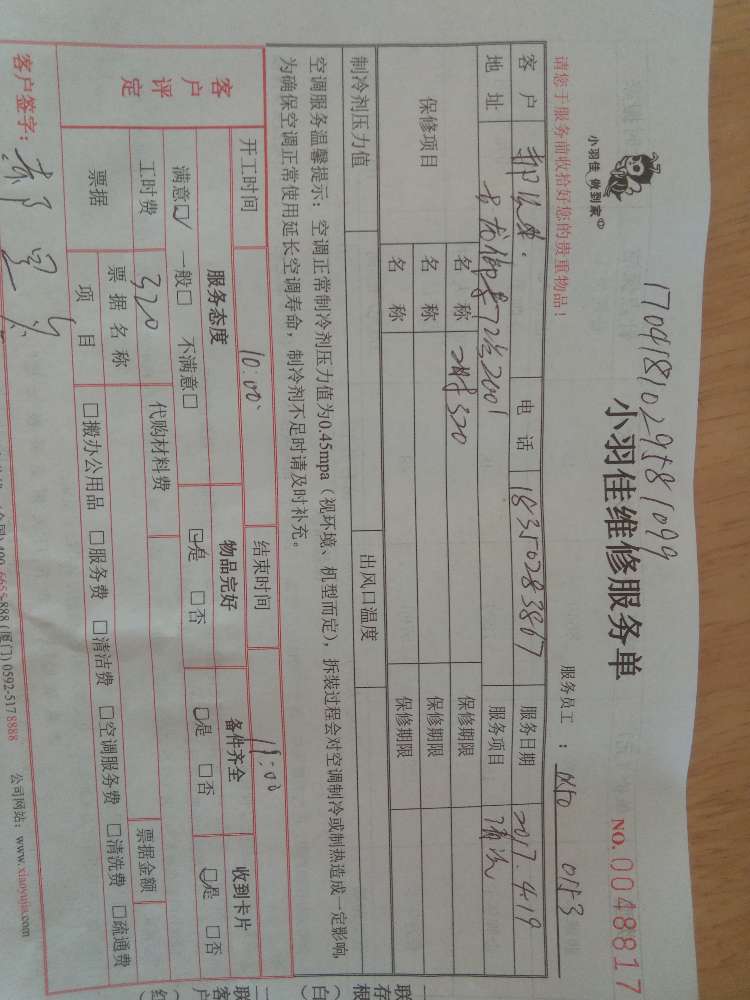 1704181029581099
小羽佳 做到家
小羽佳维修服务单
NO.0048817
请您于服务前收拾好您的贵重物品！
服务员工：
0153
客 户 电 话 18350283867 服务日期 2017.4.19
地 址 72号2001 服务项目 清洗
保修项目 名 称 2时320 保修期限
名 称 保修期限
名 称 保修期限
制冷剂压力值 出风口温度
空调服务温馨提示：空调正常制冷剂压力值为0.45mpa（视环境、机型而定），拆装过程会对空调制冷或制热造成一定影响，
为确保空调正常使用延长空调寿命，制冷剂不足时请及时补充。
开工时间 10:00 结束时间
客户评定 服务态度 物品完好 备件齐全 收到卡片
满意□ 一般□ 不满意□ □是 □否 □是 □否 □是 □否
工时费 320 代购材料费
票据 票据名称 票据金额
项 目 □搬办公用品 □服务费 □清洁费 □空调服务费 □清洗费 □疏通费
客户签字：
888 (厦门) 0592-5178888 公司网站：www.xiaoyujia.com